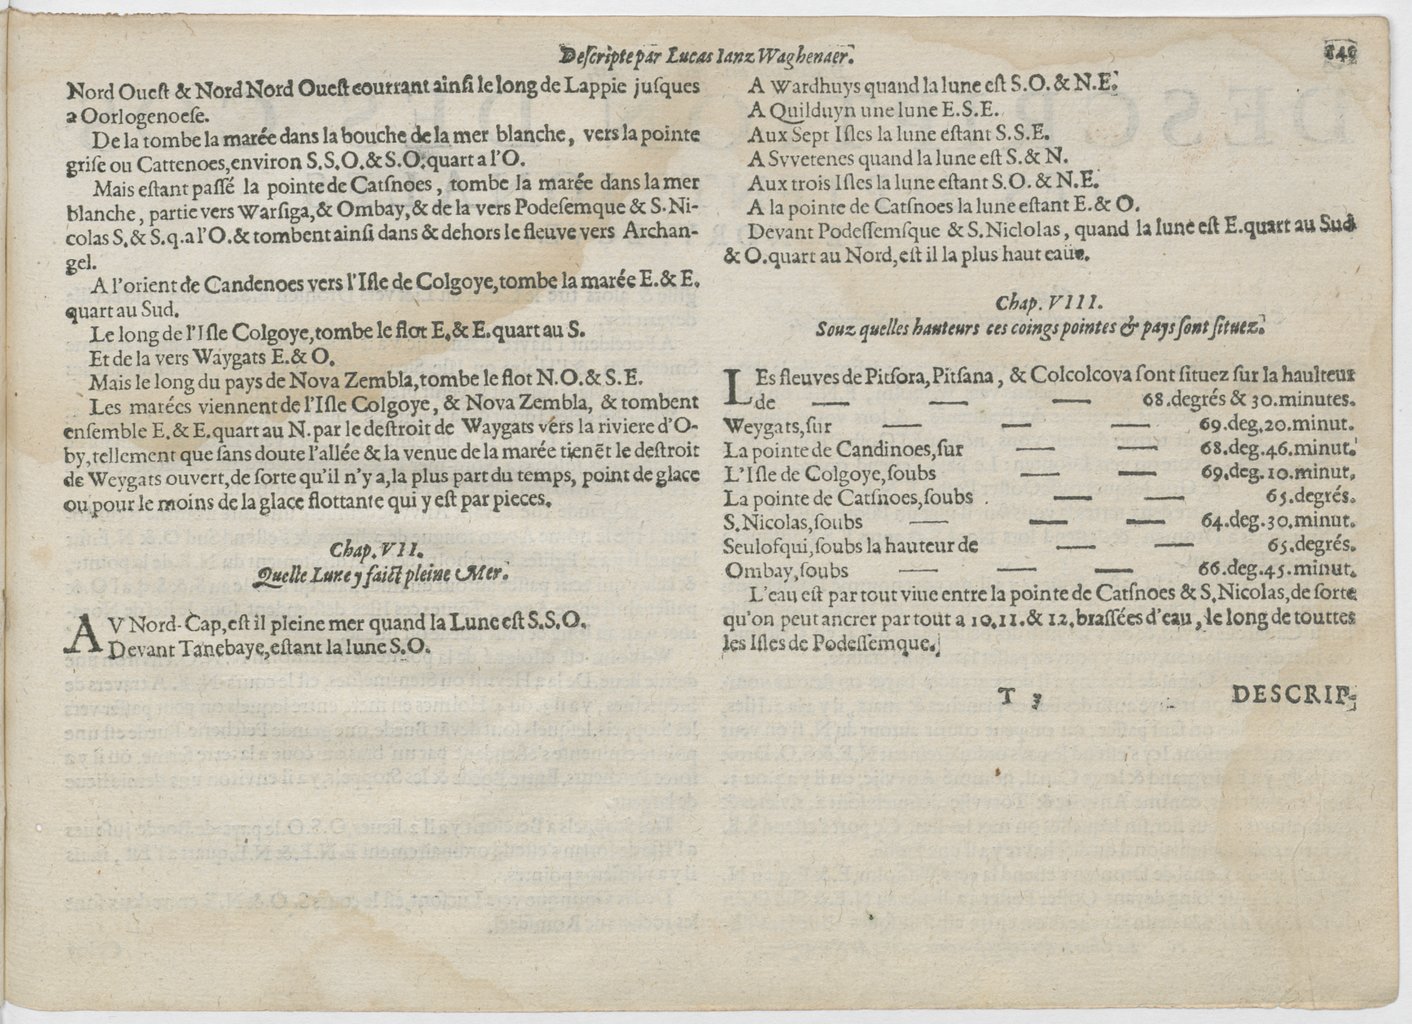 Descripte par Lucas Ianz Waghenaer.
Nord Ouest & Nord Nord Ouest courrant ainſi le long de Lappie juſques
a Oorlogenoeſe.
De la tombe la marée dans la bouche de la mer blanche, vers la pointe
griſe ou Cattenoes, environ S.S.O. & S.O. quart a l'O.
Mais eſtant paſſé la pointe de Catſnoes, tombe la marée dans la mer
blanche, partie vers Warſiga, & Ombay, & de la vers Podeſemque & S. Ni-
colas S. & S.q.a l'O. & tombent ainſi dans & dehors le fleuve vers Archan-
gel.
A l'orient de Candenoes vers l'Iſle de Colgoye, tombe la marée E. & E.
quart au Sud.
Le long de l'Iſle Colgoye, tombe le flot E. & E. quart au S.
Et de la vers Waygats E. & O.
Mais le long du pays de Nova Zembla, tombe le flot N.O. & S.E.
Les marées viennent de l'Iſle Colgoye, & Nova Zembla, & tombent
enſemble E. & E. quart au N. par le deſtroit de Waygats vérs la riviere d'O-
by, tellement que ſans doute l'allée & la venue de la marée tienēt le deſtroit
de Weygats ouvert, de ſorte qu'il n'y a, la plus part du temps, point de glace
ou pour le moins de la glace flottante qui y eſt par pieces.
Chap. VII.
Quelle Lune y faict pleine Mer.
AV Nord-Cap, eſt il pleine mer quand la Lune eſt S.S.O.
Devant Tanebaye, eſtant la lune S.O.
A Wardhuys quand la lune eſt S.O. & N.E.
A Quilduyn une lune E.S.E.
Aux Sept Iſles la lune eſtant S.S.E.
A Svvetenes quand la lune eſt S. & N.
Aux trois Iſles la lune eſtant S.O. & N.E.
A la pointe de Catſnoes la lune eſtant E. & O.
Devant Podeſſemſque & S. Niclolas, quand la lune eſt E. quart au Sud
& O. quart au Nord, eſt il la plus haut eaüe.
Chap. VIII.
Souz quelles hauteurs ces coings pointes & pays ſont ſituez.
LEs fleuves de Pitſora, Pitſana, & Colcolcova ſont ſituez ſur la haulteur
de — — — 68. degrés & 30. minutes.
Weygats, ſur — — — 69. deg. 20. minut.
La pointe de Candinoes, ſur — — 68. deg. 46. minut.
L'Iſle de Colgoye, ſoubs — — 69. deg. 10. minut.
La pointe de Catſnoes, ſoubs — — 65. degrés.
S. Nicolas, ſoubs — — — 64. deg. 30. minut.
Seulofqui, ſoubs la hauteur de — — 65. degrés.
Ombay, ſoubs — — — 66. deg. 45. minut.
L'eau eſt par tout vive entre la pointe de Catſnoes & S. Nicolas, de ſorte
qu'on peut ancrer par tout a 10. 11. & 12. braſſées d'eau, le long de touttes
les Iſles de Podeſſemque.
T 3 DESCRIP-